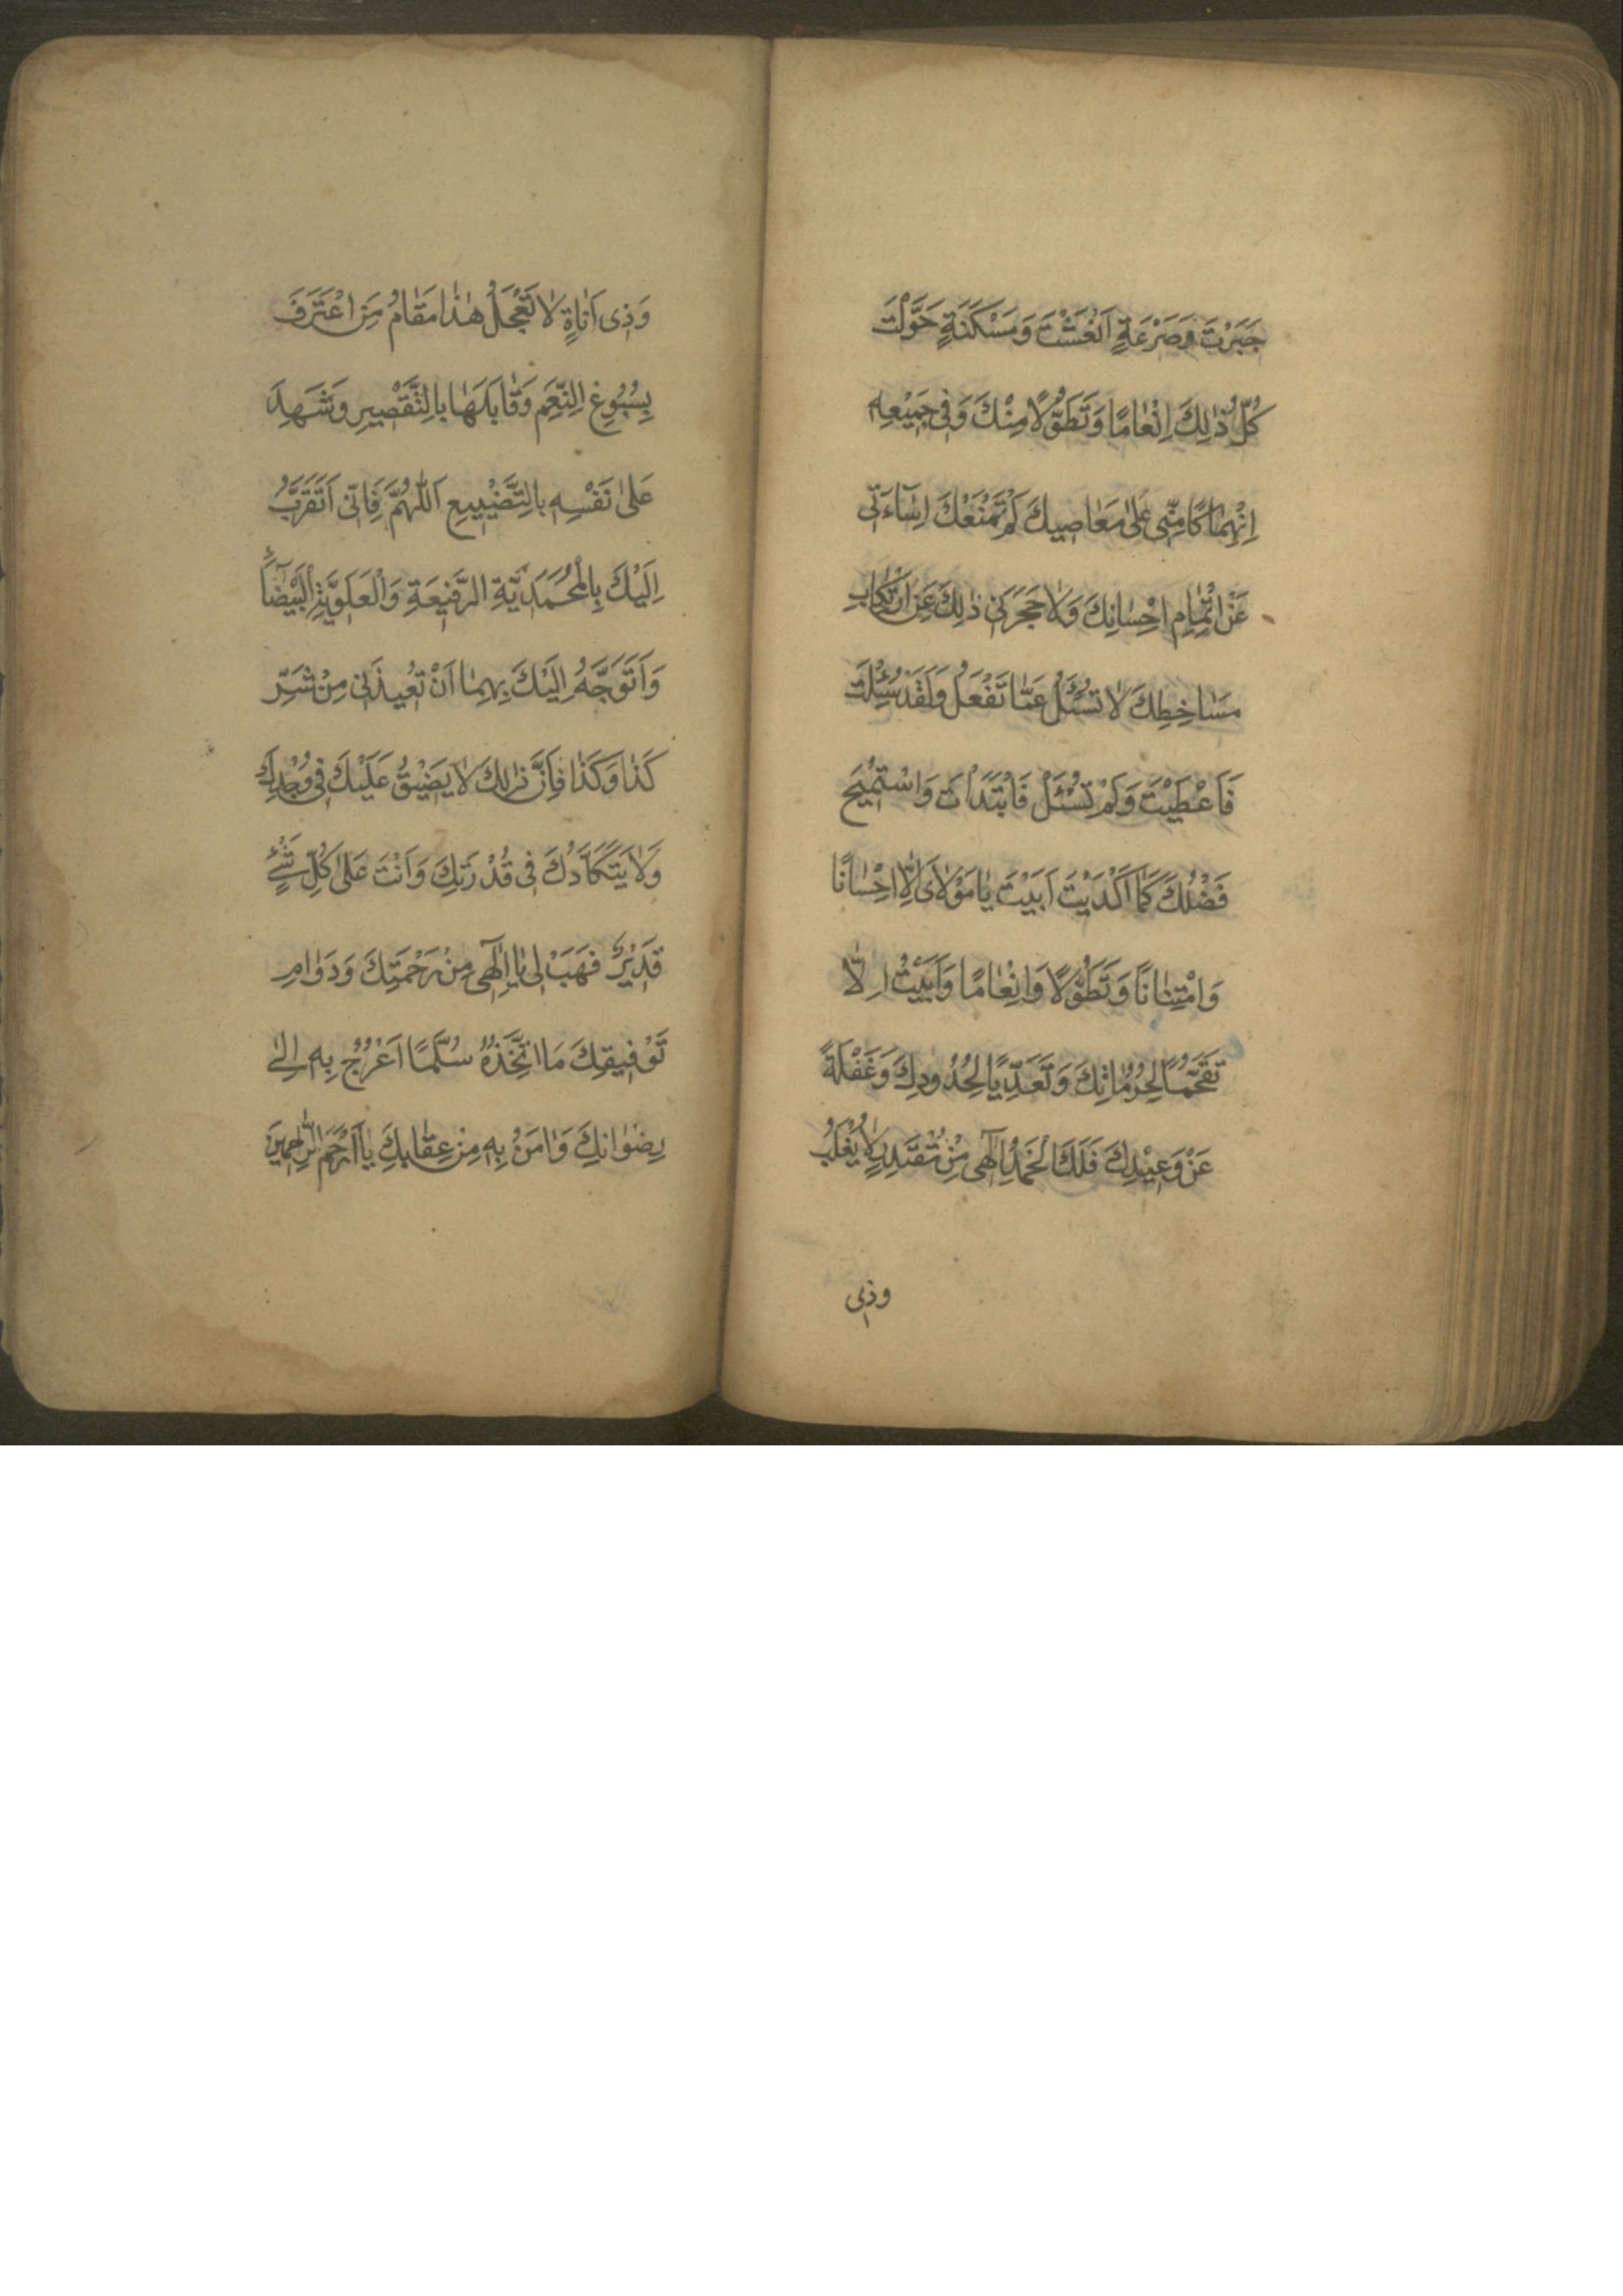 جَبَرْتَ وَصَرْعَةٍ اَنْعَشْتَ وَمَسْكَنَةٍ حَوَّلْتَ
كُلُّ ذٰلِكَ اِنْعَامًا وَتَطَوُّلًا مِنْكَ وَفِى جَمِيْعِهِ
اِنْهِمَاكًا مِنِّى عَلٰى مَعَاصِيكَ لَمْ تَمْنَعْكَ اِسَآءَتِى
عَنْ اِتْمَامِ اِحْسَانِكَ وَلَا حَجَرَنِى ذٰلِكَ عَنِ ارْتِكَابِ
مَسَاخِطِكَ لَا تُسْئَلُ عَمَّا تَفْعَلُ وَلَقَدْ سُئِلْتَ
فَاَعْطَيْتَ وَلَمْ تُسْئَلْ فَابْتَدَاْتَ وَاسْتُمِيْحَ
فَضْلُكَ فَمَا اَكْدَيْتَ اَبَيْتَ يَا مَوْلَاىَ اِلَّا اِحْسَانًا
وَامْتِنَانًا وَتَطَوُّلًا وَاِنْعَامًا وَاَبَيْتُ اِلَّا
تَقَحُّمًا لِحُرُمَاتِكَ وَتَعَدِّيًا لِحُدُودِكَ وَغَفْلَةً
عَنْ وَعِيْدِكَ فَلَكَ الْحَمْدُ اِلٰهِى مِنْ مُقْتَدِرٍ لَا يُغْلَبُ
وذى
وَذِى اَنَاةٍ لَا تَعْجَلُ هٰذَا مَقَامُ مَنِ اعْتَرَفَ
بِسُبُوغِ النِّعَمِ وَقَابَلَهَا بِالتَّقْصِيرِ وَشَهِدَ
عَلٰى نَفْسِهِ بِالتَّضْيِيعِ اَللّٰهُمَّ فَاِنِّى اَتَقَرَّبُ
اِلَيْكَ بِالْمُحَمَّدِيَّةِ الرَّفِيعَةِ وَالْعَلَوِيَّةِ الْبَيْضَآءِ
وَاَتَوَجَّهُ اِلَيْكَ بِهِمَا اَنْ تُعِيذَنِى مِنْ شَرِّ
كَذَا وَكَذَا فَاِنَّ ذٰلِكَ لَا يَضِيْقُ عَلَيْكَ فِى وُجْدِكَ
وَلَا يَتَكَاَّدُكَ فِى قُدْرَتِكَ وَاَنْتَ عَلٰى كُلِّ شَىْءٍ
قَدِيْرٌ فَهَبْ لِى يَا اِلٰهِى مِنْ رَحْمَتِكَ وَدَوَامِ
تَوْفِيقِكَ مَا اَتَّخِذُهُ سُلَّمًا اَعْرُجُ بِهِ اِلٰى
رِضْوَانِكَ وَاٰمَنُ بِهِ مِنْ عِقَابِكَ يَا اَرْحَمَ الرَّاحِمِينَ